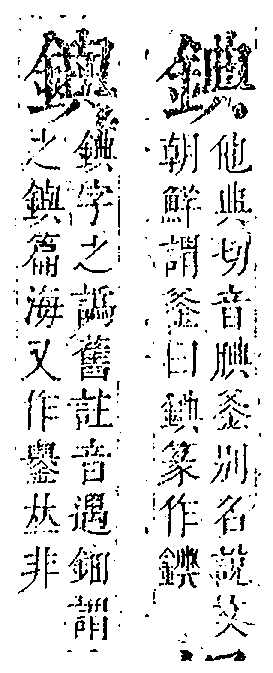 錪
他典切音腆釜別名說文
朝鮮謂釜曰錪篆作
錪字之譌舊註音遇鉏謂
之篇海又作𠀤非